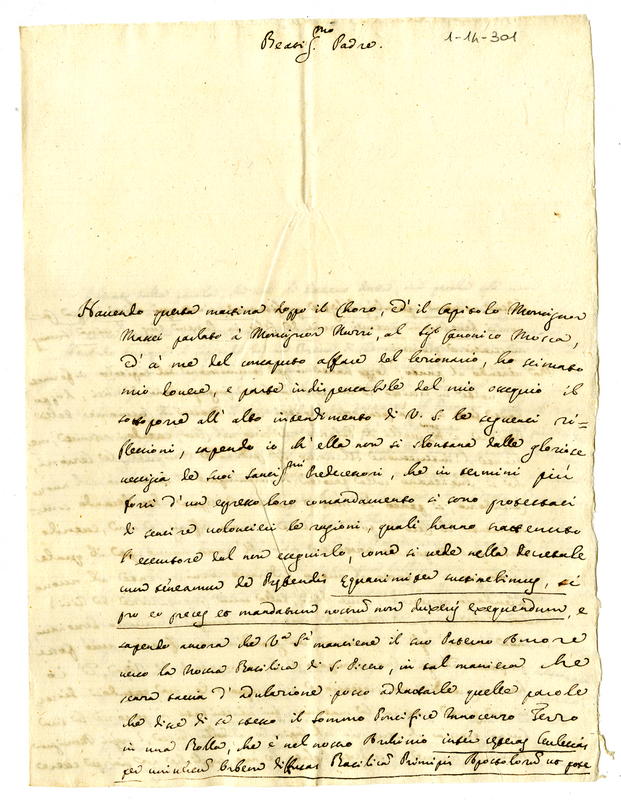 1-14-301
Beatiss.mo Padre.
Havendo questa mattina doppo il Choro, ed' il Capitolo Monsignor
Masei parlato à Monsignor Nurri, al Sig.r Canonico Mosca,
ed' à me del consaputo affare del lezionario, ho stimato
mio dovere, e parte indispensabile del mio ossequio il
sottoporre all' alto intendimento di V. S. le seguenti ri=
flessioni, sapendo io ch' ella non si slontana dalle gloriose
vestigia de suoi Santiss.mi Predecessori, che in termini più
forti d' un espresso loro comandamento si sono protestati
di sentire volontieri le ragioni, quali hanno trattenuto
l' esecutore dal non eseguirlo, come si vede nella decretale
cum teneamur de Prebendis equanimiter sustinebimus, si
pro eo preces et mandatum nostrum non duxeris exequendum, e
sapendo ancora che V.a S.a mantiene il suo Paterno Amore
verso la Nostra Basilica di S. Pietro, in tal maniera che
senza taccia d' adulazione posso addattarle quelle parole
che disse di se stesso il Sommo Pontifice Innocenzo Terzo
in una Bolla, che è nel nostro Archivio inter ceteras Ecclesias
per universum Orbem diffusas Basilicam Principis Apostolorum eo